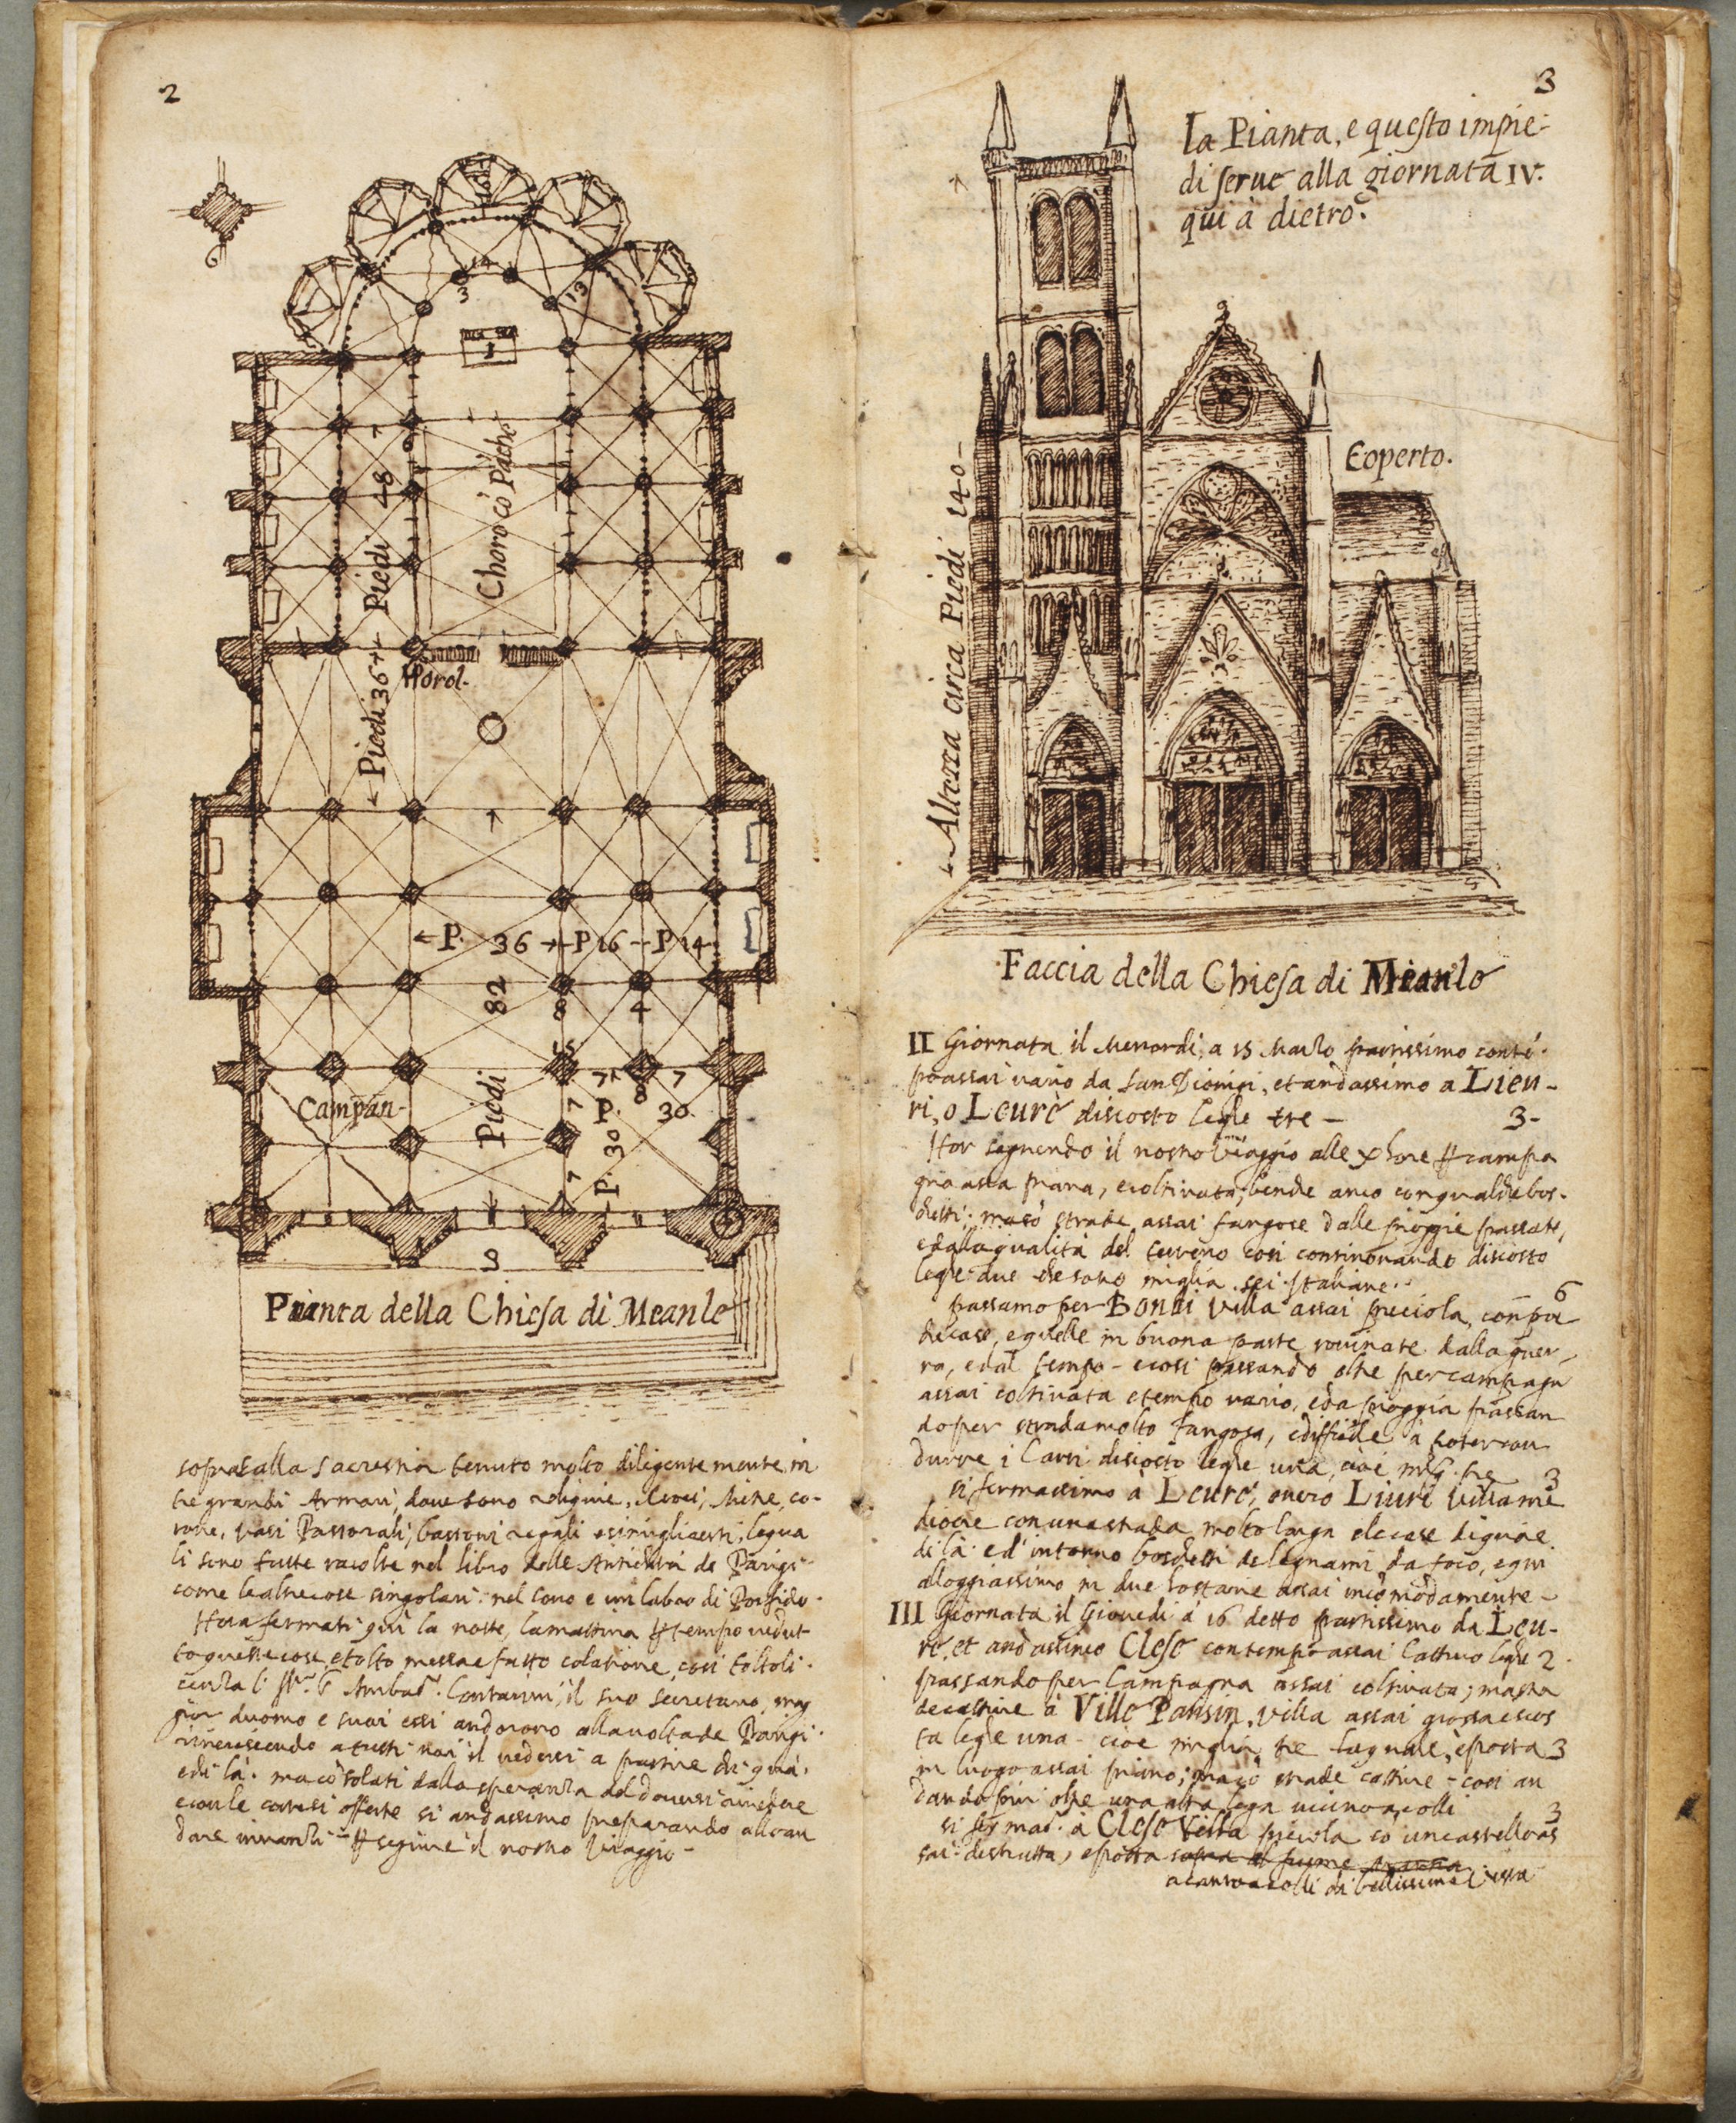 2
14
3
13
1
6
Choro cō Pāche
Piedi 48
Piedi 36
Horol.
P. 36 P 16 P 14
Piedi 82
8 4
15
7 7
8
Campan-
7 P. 30
P. 30
7
9
Pianta della Chiesa di Meanlo
sopra alla Sacrestia tenuto molto diligentemente, in
tre grandi Armari, dove sono religuie, Croci, Mitre, co-
rone, vasi Pastorali, bastoni regali e simiglianti, le qua
li sono tutte racolte nel libro delle Antichità de Parigi
come le altre cose singolari: nel coro e un labro di Porfido.
Hora fermati qui la notte, la mattina
to queste cose, e tolto messa e fatto colatione, cosi toltoli
cenza Ambas.r Contarini, il suo secretario, mag
gior duomo e suoi essi andorono alla volta de Parigi
rincrescendo a tutti noi il vedersi a partire di qua,
e di là. ma cōsolati dalla speranza del doversi rivedere
e con le cortesi offerte si andassimo preparando all'an
dare inanzi seguire il nostro Viaggio-
3
La Pianta, e questo impie-
di serue alla giornata IV.
qui à dietro.
Coperto.
Altezza circa Piedi 140
Faccia della Chiesa di Meanlo
II Giornata il Mercordi, a 15 Marzo partissimo con tē-
po assai vario da San Dionigi, et andassimo a Lieu-
ri, o Leurè discosto leghe tre - 3-
Hor seguendo il nostro viaggio alle x hore campa
gna assai piana, e coltivata, benche anco con qualche bos-
chetti: ma cō strade assai fangose dalle pioggie passate,
e dalla qualità del terreno cosi continouando discosto
leghe due che sono miglia sei Italiane. 6
passamo per Bondi villa assai picciola, con po
che case, e quelle in buona parte rovinate dalla guer-
ra, e dal tempo - e cosi passando oltre per campagn
assai coltivata e tempo vario, e da pioggia passan
do per strada molto fangosa, e difficile à poter con
durre i Carri discosto leghe una, cioè mig. tre 3
si fermassimo à Leurè, ouero Liurè villa me
diocre con una strada molto larga e le case di qua e
di la: e d'intorno boschetti de legnami da foco, e qui
alloggiassimo in due hostarie assai incōmodamente-
III Giornata il Giovedi à 16 detto partissimo da Leu-
re, et andassimo Clese con tempo assai Cattivo leghe 2
passando per Campagna assai coltivata; ma strade
cattive à Ville Parisin, villa assai grossa discos
ta leghe una - cioè miglia tre la quale, e posta 3
in luogo assai piano; ma cō strade cattive - cosi an
dando poi oltre una altra lega vicino a, colli 3
si fermas. à Clese Villa picciola cō un castello as
sai destrutto, e posta sopra il fiume
a canto a colli di bellissima vista